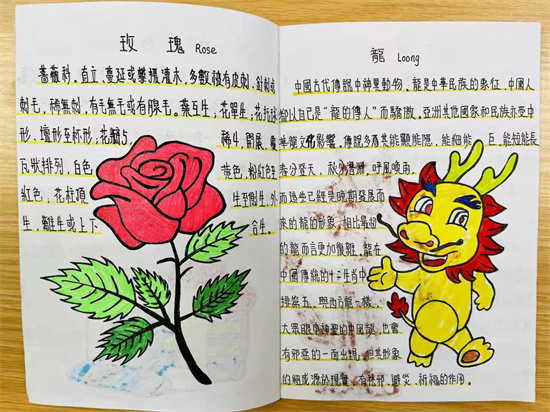 玫 瑰 Rose
薔薇科。直立、蔓延或攀援灌木,多數被有皮刺、針刺或
刺毛,稀無刺,有毛無毛或有腺毛。葉互生,花單生,花托球
形、壇形至杯形;花瓣5,稀4,開展,覆
瓦狀排列,白色、黃色,粉紅色至
紅色,花柱頂生至側生,外
生,離生或上下合生。
龍 Loong
中國古代傳說中神異動物,龍是中華民族的象征,中國人
都以自己是“龍的傳人”而驕傲,亞洲其他國家和民族亦受中
華龍文化影響,傳說多為其能顯能隱,能細能巨,能短能長
春分登天,秋分潛淵,呼風喚雨,
而這些已經是晚期發展而
來的龍的形象,相比最初
的龍而言更加復雜。龍在
中國傳統的十二生肖中
排第五,與西方龍一樣
大眾眼中神聖的中國龍,也會
有邪惡的一面出現,但其形象
的組成源於現實,有祛邪、避災、祈福的作用。